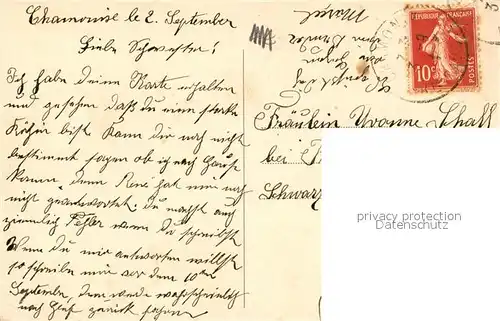 Chamounise le 2. September
Liebe Schwester!
Ich habe deine Karte erhalten
und gesehen daß du eine starke
Köchin bist. Kann dir noch nicht
bestimmt sagen ob ich nach Hause
kommen, denn René hat mir noch
nicht geantwortet. du machst auch
ziemlich Fehler wenn du schreibst
Wenn du mir antworten willst
so schreibe mir vor dem 10ten
September, denn werde wahrscheinlich
nach Genf zurück fahren
Marcel
REPUBLIQUE FRANÇAISE
10
POSTES
Fräulein Yvonne Schall
bei
Schwarz
privacy protection
Datenschutz